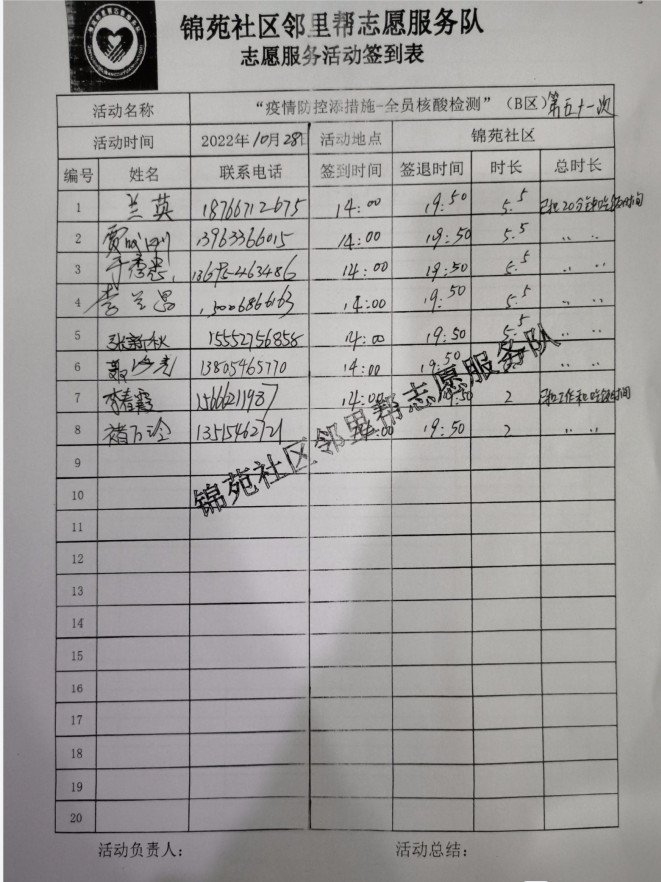 锦苑社区邻里帮志愿服务队
志愿服务活动签到表
活动名称 “疫情防控添措施-全员核酸检测”（B区）第五十一次
活动时间 2022年10月28日 活动地点 锦苑社区
编号 姓名 联系电话 签到时间 签退时间 时长 总时长
1 兰英 18766712675 14:00 19:50 5.5 已扣20分钟吃饭时间
2 13963366015 14:00 19:50 5.5 〃 〃
3 14:00 19:50 5.5 〃 〃
4 李兰恩 14:00 19:50 5.5 〃 〃
5 张新秋 15552756858 14:00 19:50 5.5 〃 〃
6 13805465770 14:00 19:50 〃 〃
7 李春霞 15666211987 14:00 19:50 2 已扣工作和吃饭时间
8 褚万玲 13515462721 14:00 19:50 2 〃 〃
9
10
11
12
13
14
15
16
17
18
19
20
锦苑社区邻里帮志愿服务队
活动负责人： 活动总结：